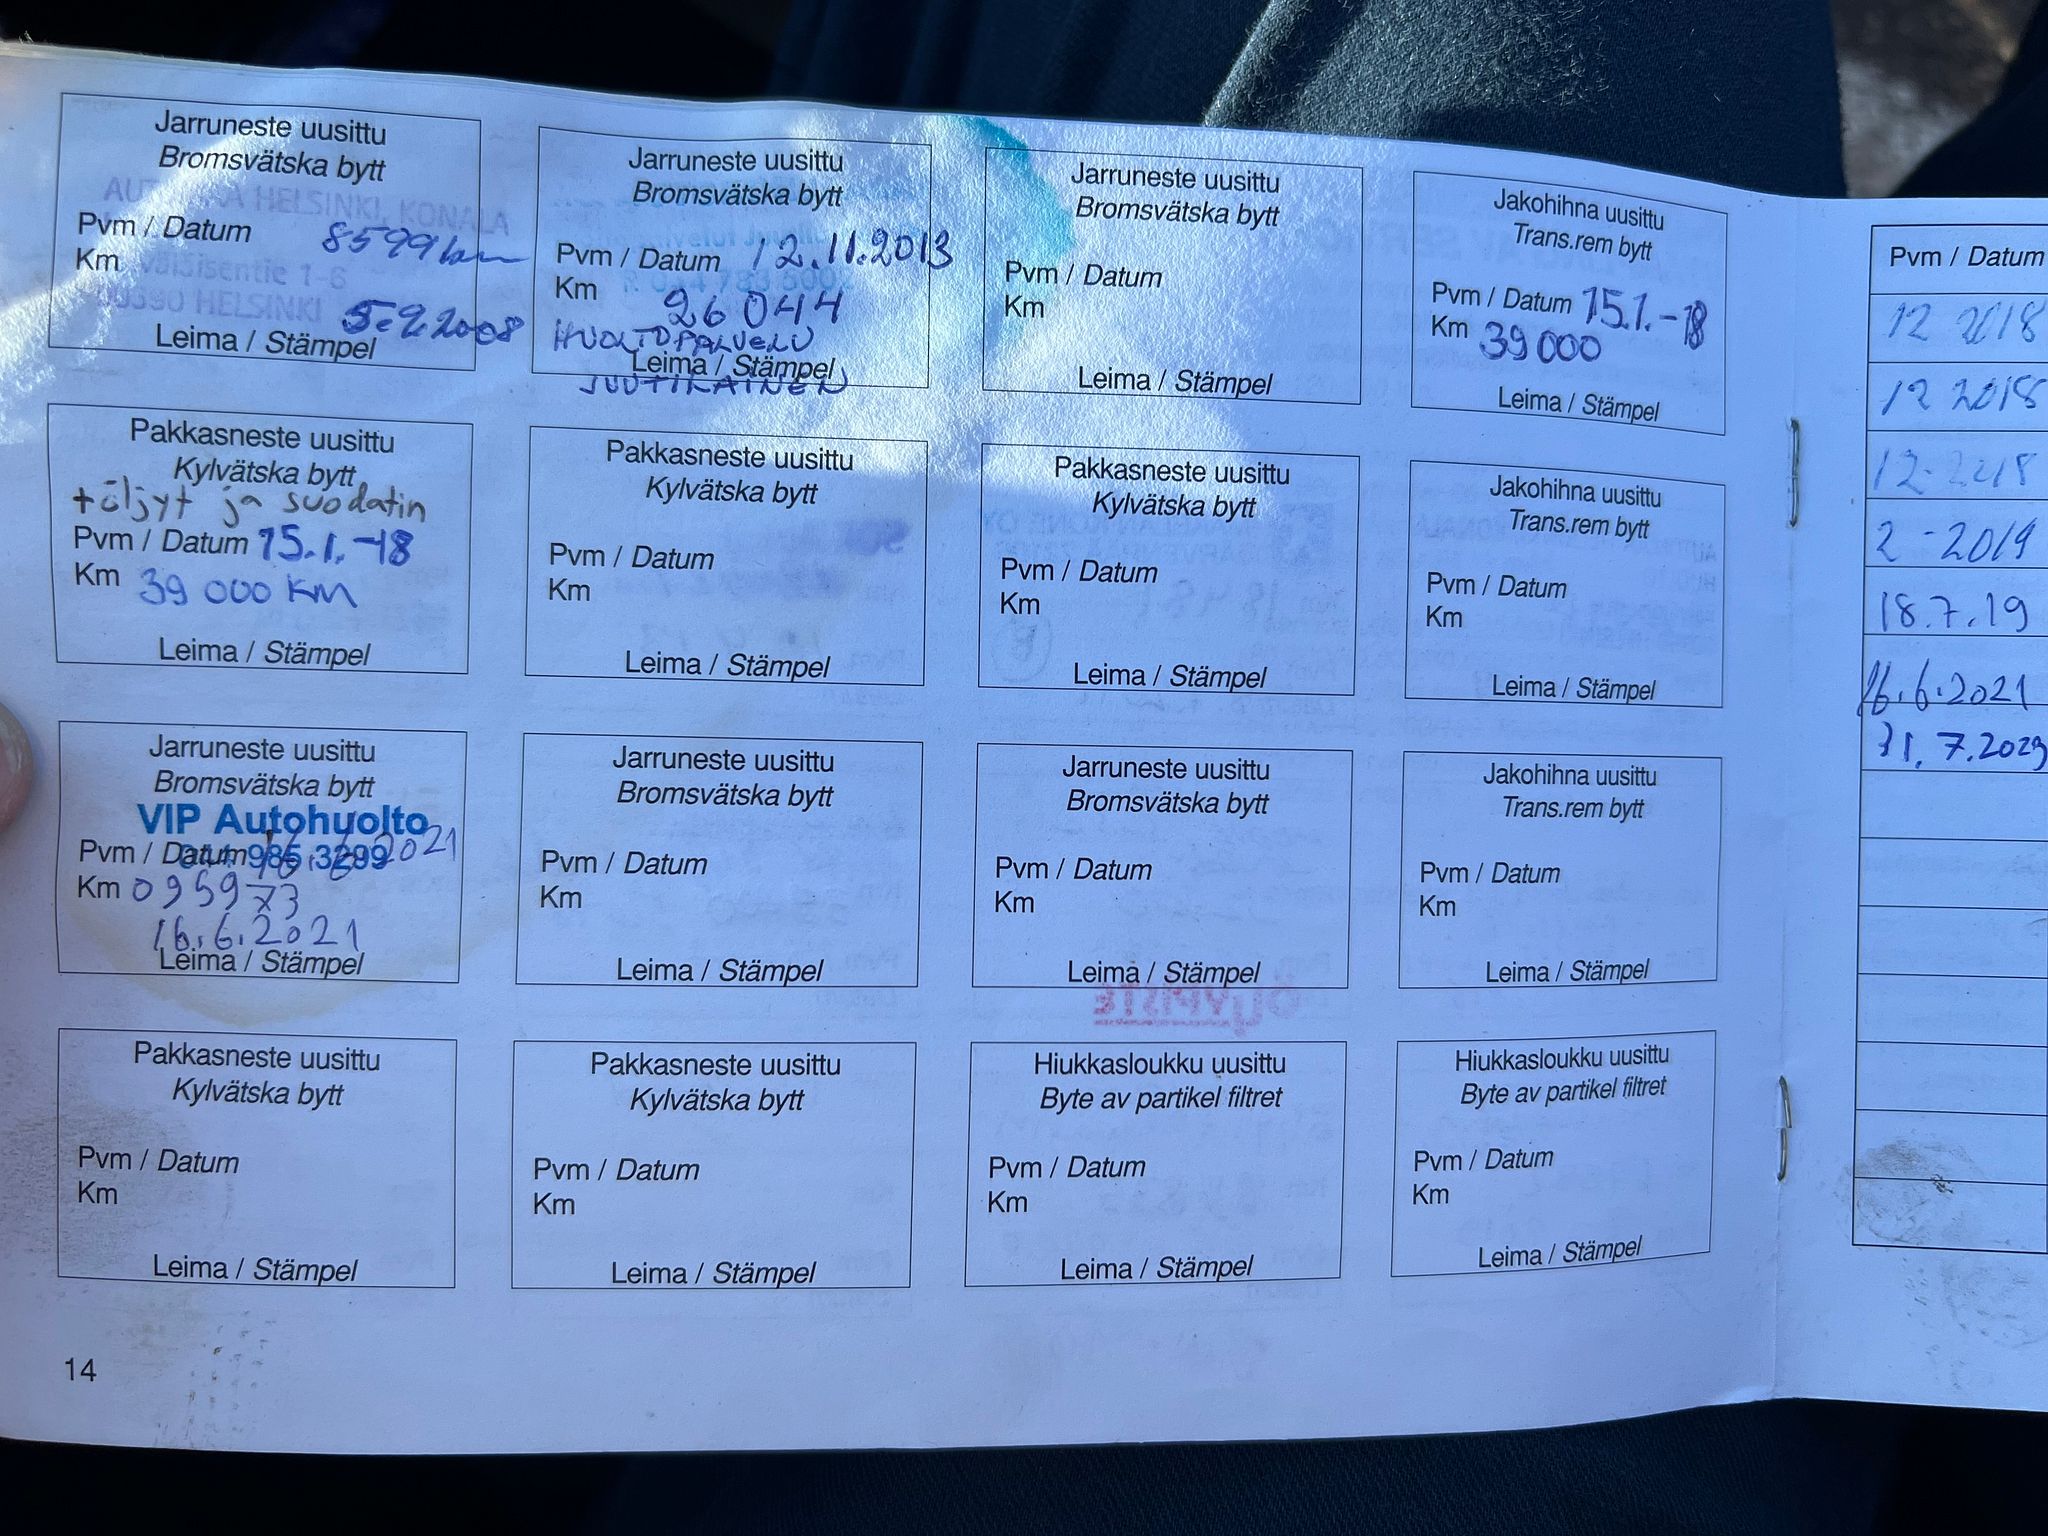 Jarruneste uusittu
Bromsvätska bytt
HELSINKI, KONALA
Pvm / Datum 8599 km
Km
1-6
00390 HELSINKI 5.9.2008
Leima / Stämpel
Jarruneste uusittu
Bromsvätska bytt
Pvm / Datum 12.11.2013
Km 26 044
HUOLTOPALVELU
Leima / Stämpel
JUUTILAINEN
Jarruneste uusittu
Bromsvätska bytt
Pvm / Datum
Km
Leima / Stämpel
Jakohihna uusittu
Trans.rem bytt
Pvm / Datum 15.1.-18
Km 39 000
Leima / Stämpel
Pakkasneste uusittu
Kylvätska bytt
+öljyt ja suodatin
Pvm / Datum 15.1.-18
Km 39 000 KM
Leima / Stämpel
Pakkasneste uusittu
Kylvätska bytt
Pvm / Datum
Km
Leima / Stämpel
Pakkasneste uusittu
Kylvätska bytt
Pvm / Datum
Km
Leima / Stämpel
Jakohihna uusittu
Trans.rem bytt
Pvm / Datum
Km
Leima / Stämpel
Jarruneste uusittu
Bromsvätska bytt
VIP Autohuolto
Pvm / Datum 16.6.2021
985 3299
Km 095973
16.6.2021
Leima / Stämpel
Jarruneste uusittu
Bromsvätska bytt
Pvm / Datum
Km
Leima / Stämpel
Jarruneste uusittu
Bromsvätska bytt
Pvm / Datum
Km
Leima / Stämpel
Jakohihna uusittu
Trans.rem bytt
Pvm / Datum
Km
Leima / Stämpel
Pakkasneste uusittu
Kylvätska bytt
Pvm / Datum
Km
Leima / Stämpel
Pakkasneste uusittu
Kylvätska bytt
Pvm / Datum
Km
Leima / Stämpel
Hiukkasloukku uusittu
Byte av partikel filtret
Pvm / Datum
Km
Leima / Stämpel
Hiukkasloukku uusittu
Byte av partikel filtret
Pvm / Datum
Km
Leima / Stämpel
14
Pvm / Datum
12 2018
12 2018
12-2018
2-2019
18.7.19
16.6.2021
31.7.2023